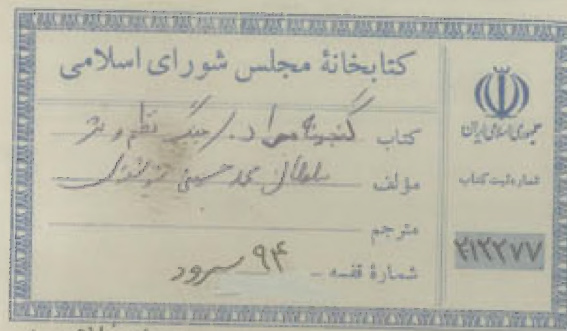 کتابخانهٔ مجلس شورای اسلامی
کتاب گنجینه مراد. نظم و نثر
مؤلف سلطان محمد حسینی
مترجم
شمارهٔ قفسه ۹۴ سرود
جمهوری اسلامی ایران
شماره ثبت کتاب
۲۱۲۲۷۷